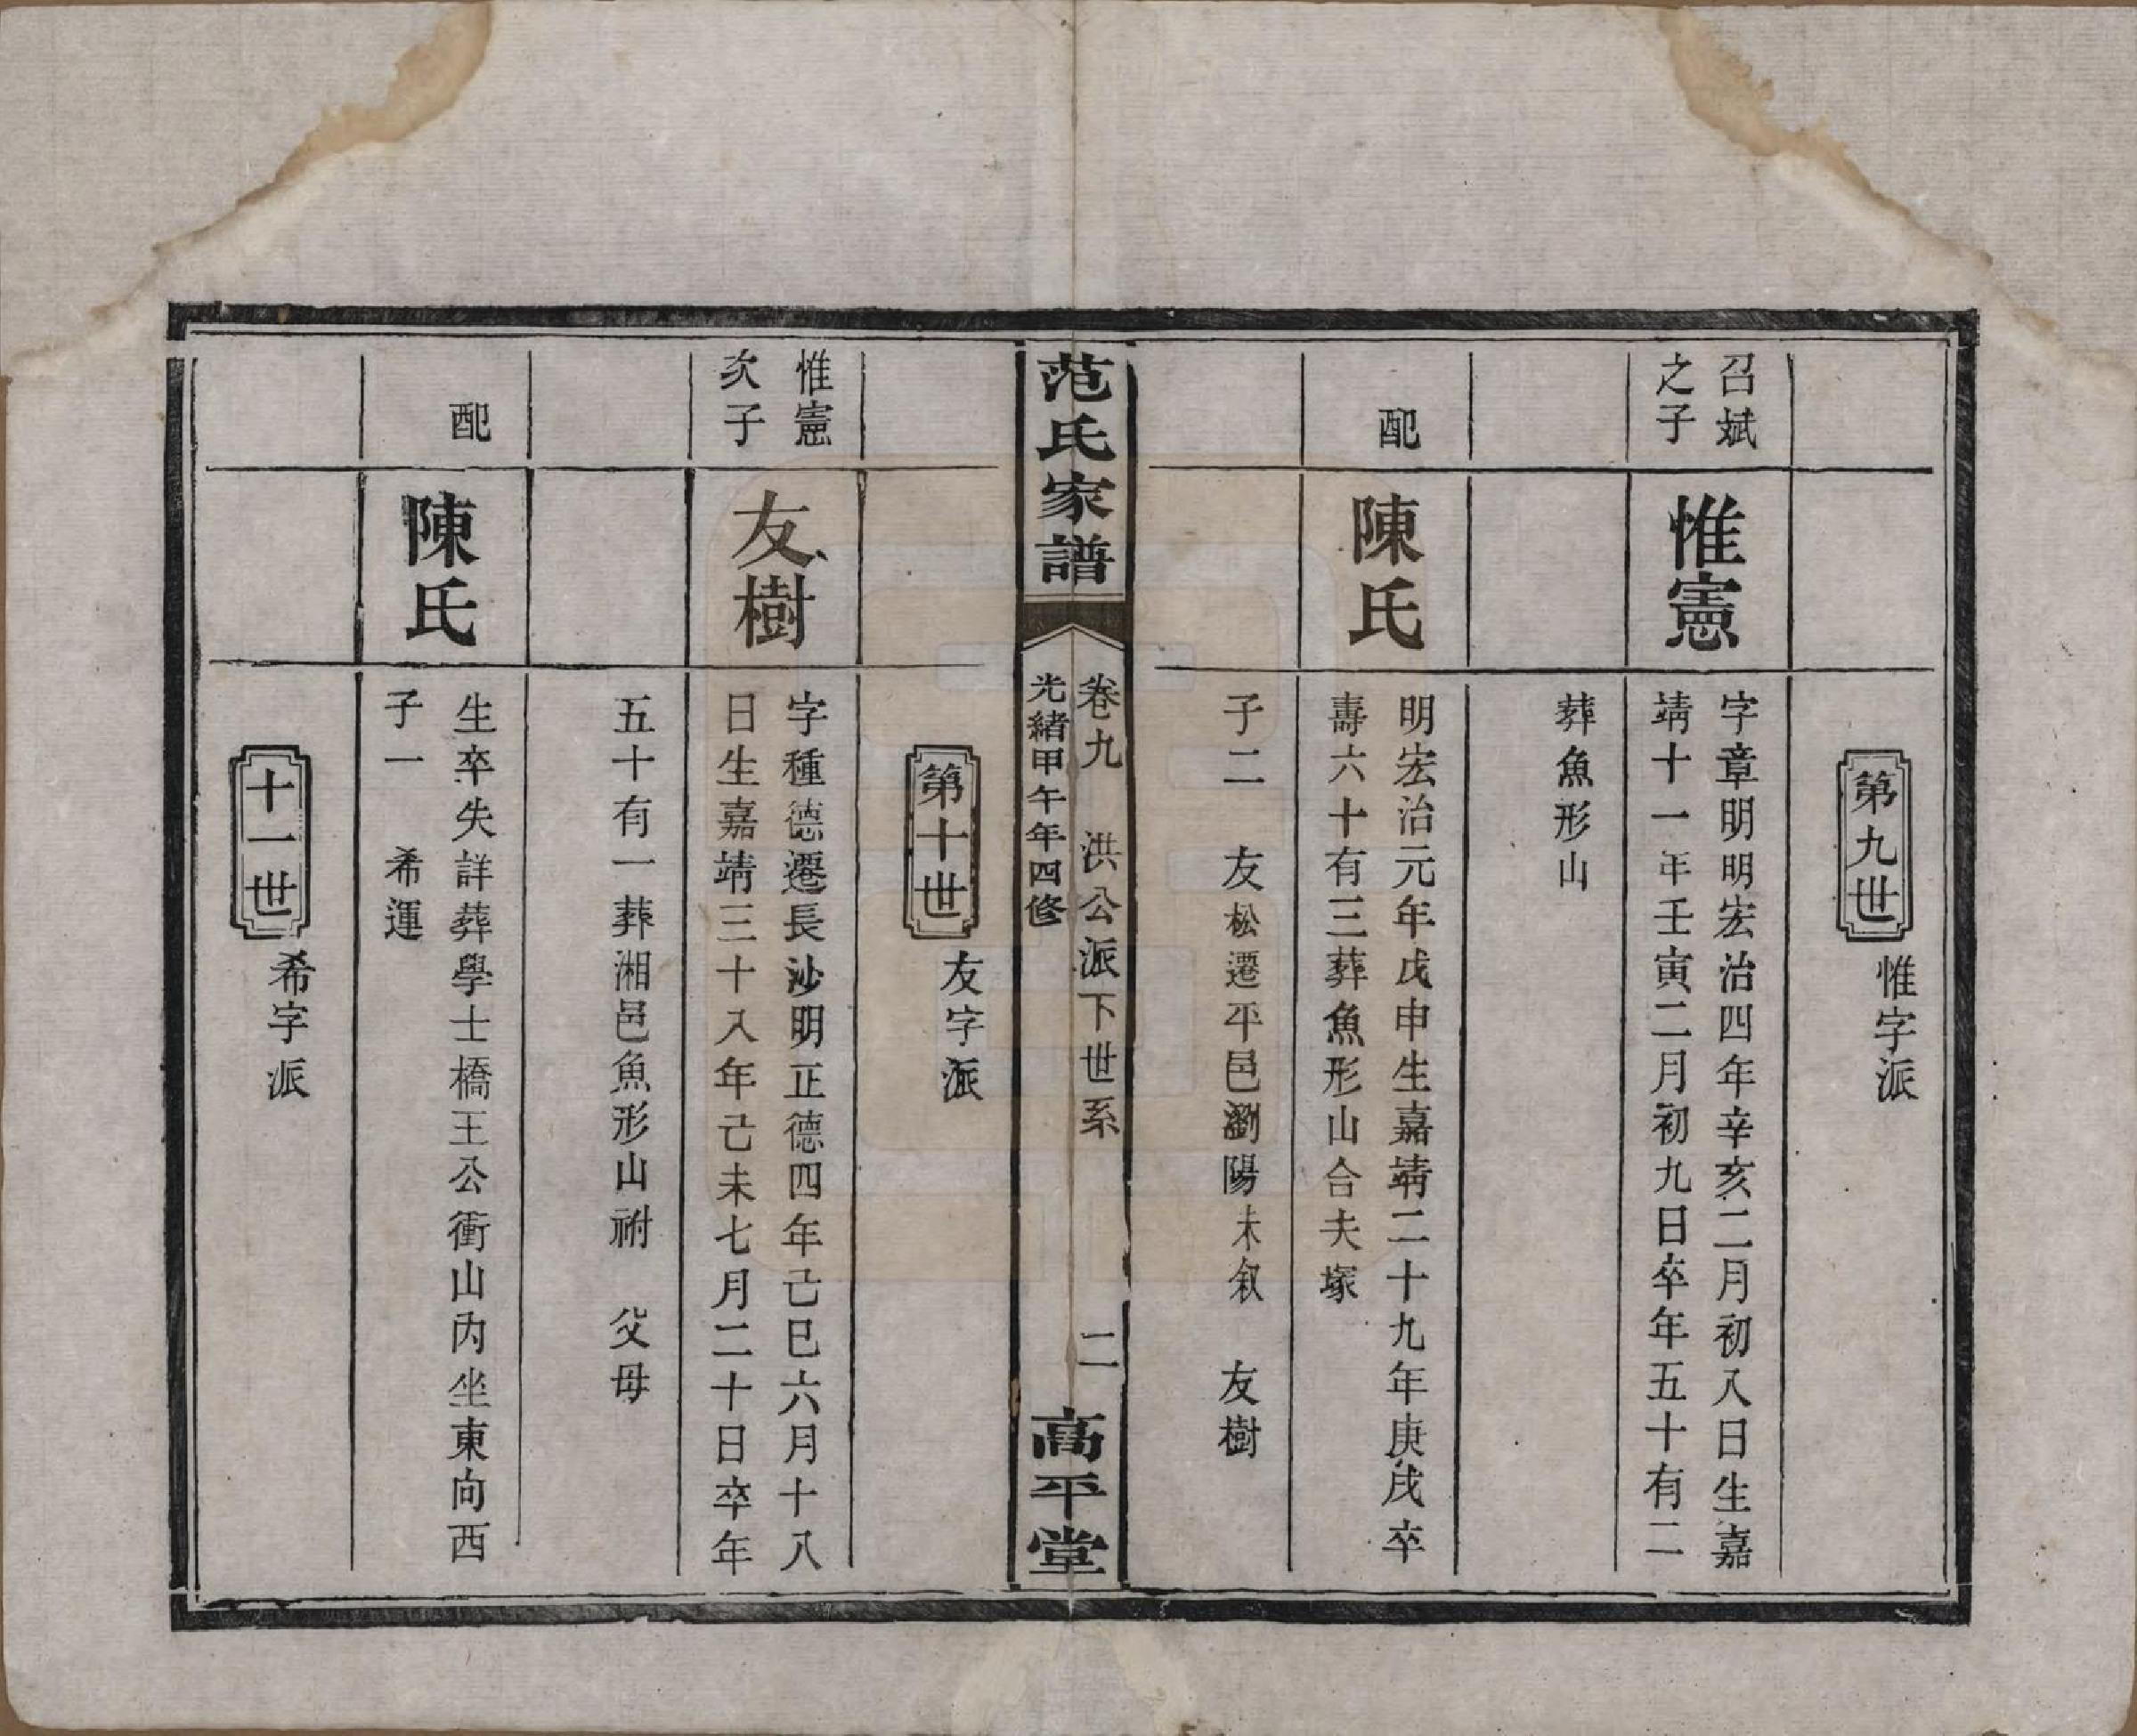 第九世
惟字派
召斌
之子
惟憲
字章明明宏治四年辛亥二月初八日生嘉
靖十一年壬寅二月初九日卒年五十有二
葬魚形山
配
陳氏
明宏治元年戊申生嘉靖二十九年庚戌卒
壽六十有三葬魚形山合夫塚
子二　友松遷平邑瀏陽未叙　友樹
范氏家譜
卷九　洪公派下世系　二
光緒甲午年四修
高平堂
第十世
友字派
惟憲
次子
友樹
字種德遷長沙明正德四年己巳六月十八
日生嘉靖三十八年己未七月二十日卒年
五十有一葬湘邑魚形山祔　父母
配
陳氏
生卒失詳葬學士橋王公衝山內坐東向西
子一　希運
十一世
希字派